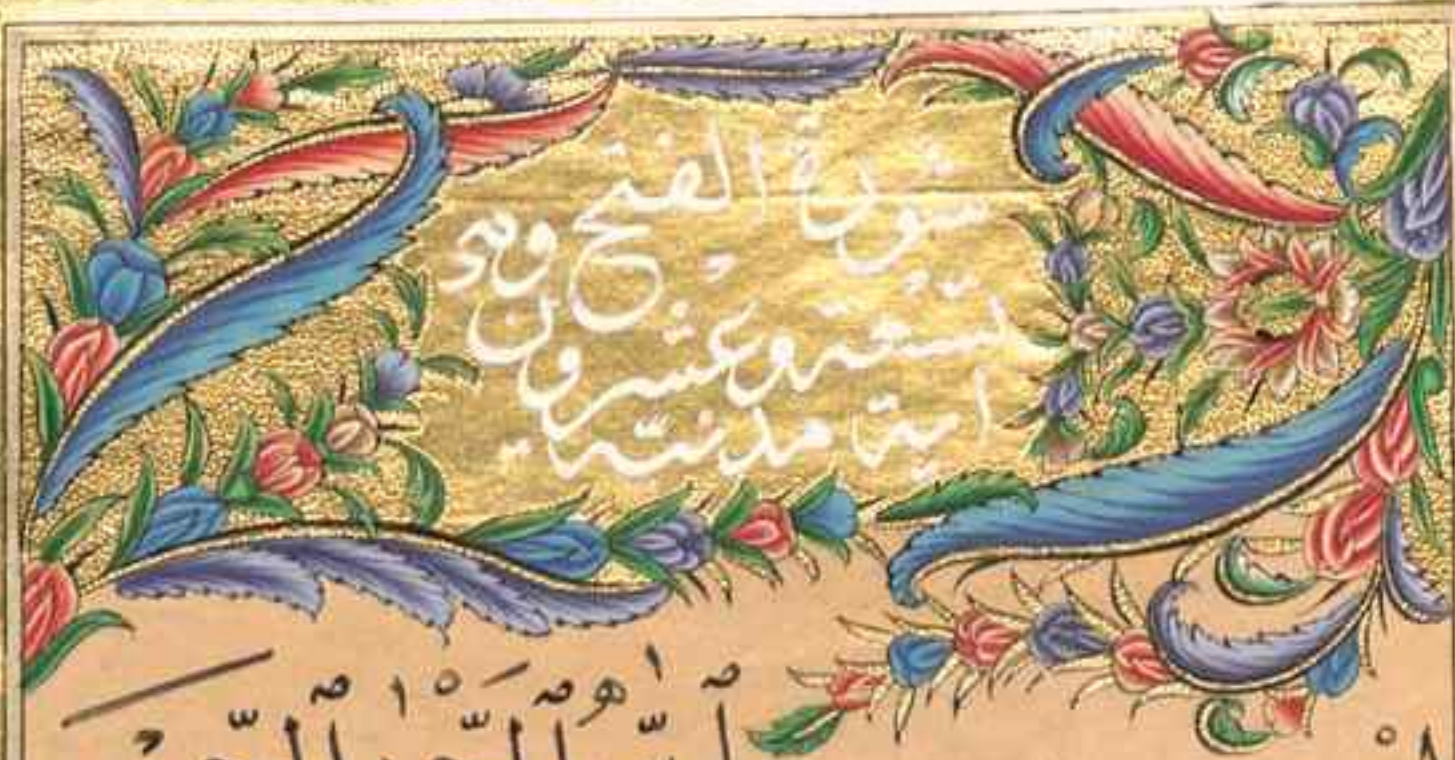 سورة الفتح وهي
تسعة وعشرون
اية مدنية